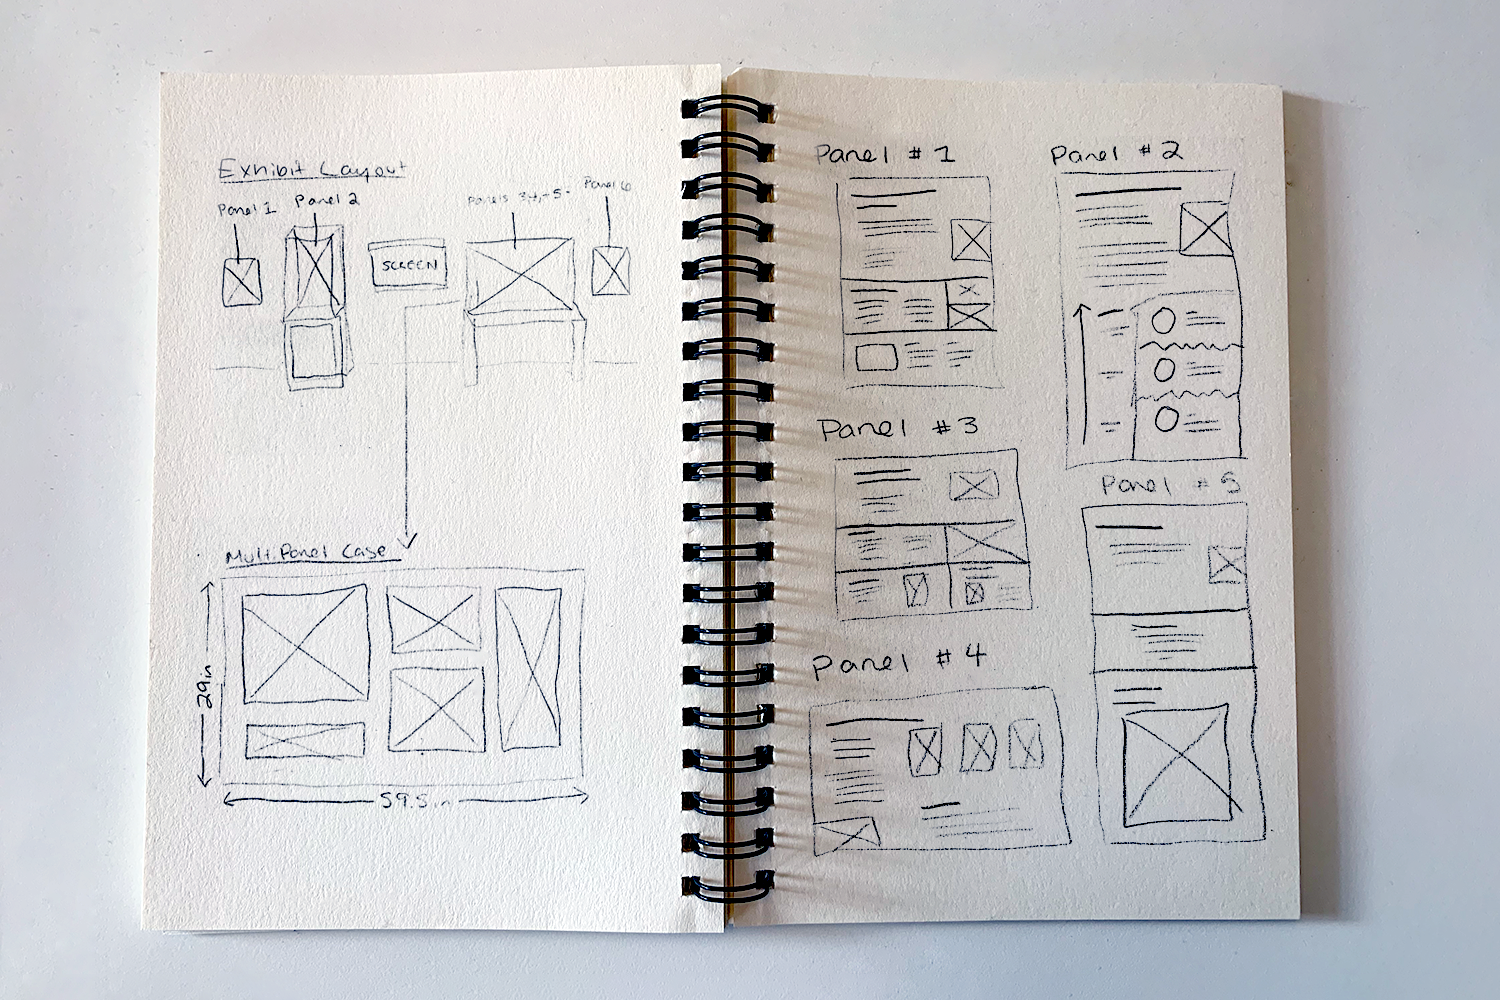 Exhibit Layout
Panel 1
Panel 2
Panels 3,4,+5
Panel 6
SCREEN
Multi Panel Case
29in
59.5in
Panel #1
Panel #2
Panel #3
Panel #5
Panel #4